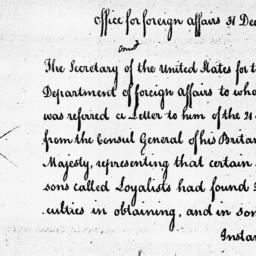 Office for foreign Affairs 31 Dec
and
The Secretary of the United States for t
Department of foreign affairs to who
was referred a Letter to him of the 21
from the Consul General of his Britan
Majesty, representing that certain
sons called Loyalists had found
culties in obtaining, and in som
Instan